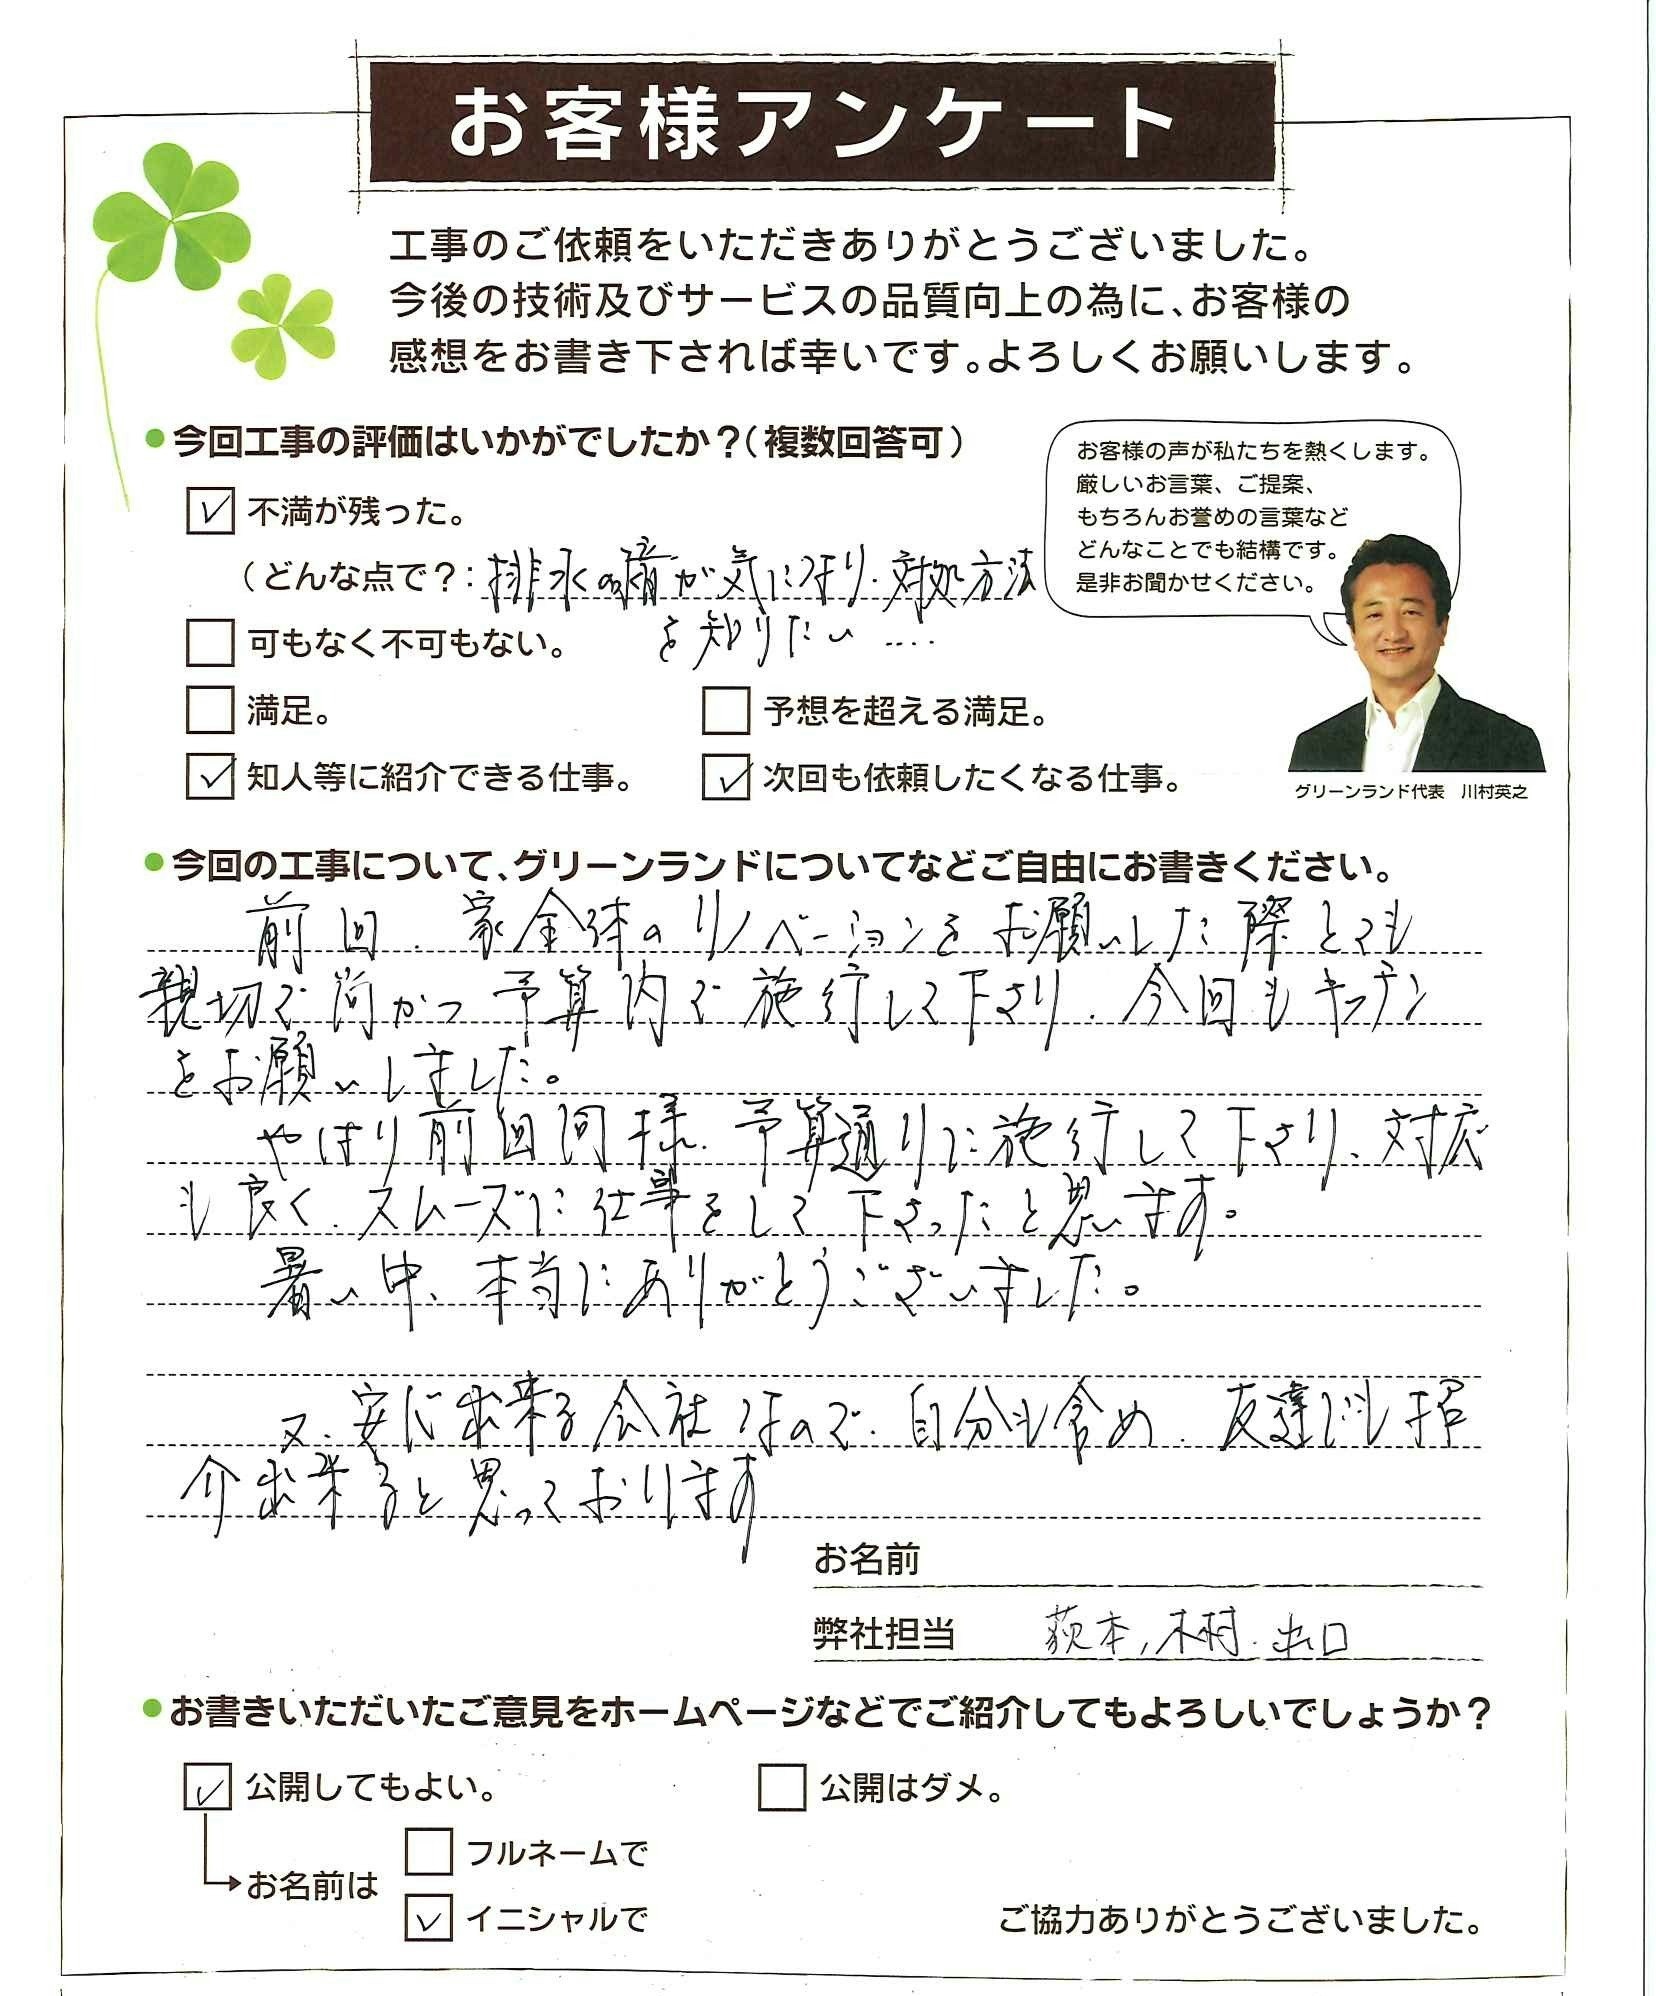 お客様アンケート
工事のご依頼をいただきありがとうございました。
今後の技術及びサービスの品質向上の為に、お客様の
感想をお書き下されば幸いです。よろしくお願いします。
●今回工事の評価はいかがでしたか？（複数回答可）
お客様の声が私たちを熱くします。
厳しいお言葉、ご提案、
もちろんお誉めの言葉など
どんなことでも結構です。
是非お聞かせください。
グリーンランド代表 川村英之
不満が残った。
（どんな点で？：排水の が気になり、対処方法
を知りたい ‥‥
可もなく不可もない。
満足。
予想を超える満足。
知人等に紹介できる仕事。
次回も依頼したくなる仕事。
●今回の工事について、グリーンランドについてなどご自由にお書きください。
前回、家全体のリノベーションをお願いした際とても
親切で尚かつ予算内で施行して下さり、今回もキッチン
をお願いしました。
やはり前回同様、予算通りに施行して下さり、対応
も良く、スムーズに仕事をして下さったと思います。
暑い中、本当にありがとうございました。
又、安心出来る会社なので、自分も含め、友達にも紹
介出来ると思っております
お名前
弊社担当 荻本、木村、出口
●お書きいただいたご意見をホームページなどでご紹介してもよろしいでしょうか？
公開してもよい。
公開はダメ。
お名前は
フルネームで
イニシャルで
ご協力ありがとうございました。